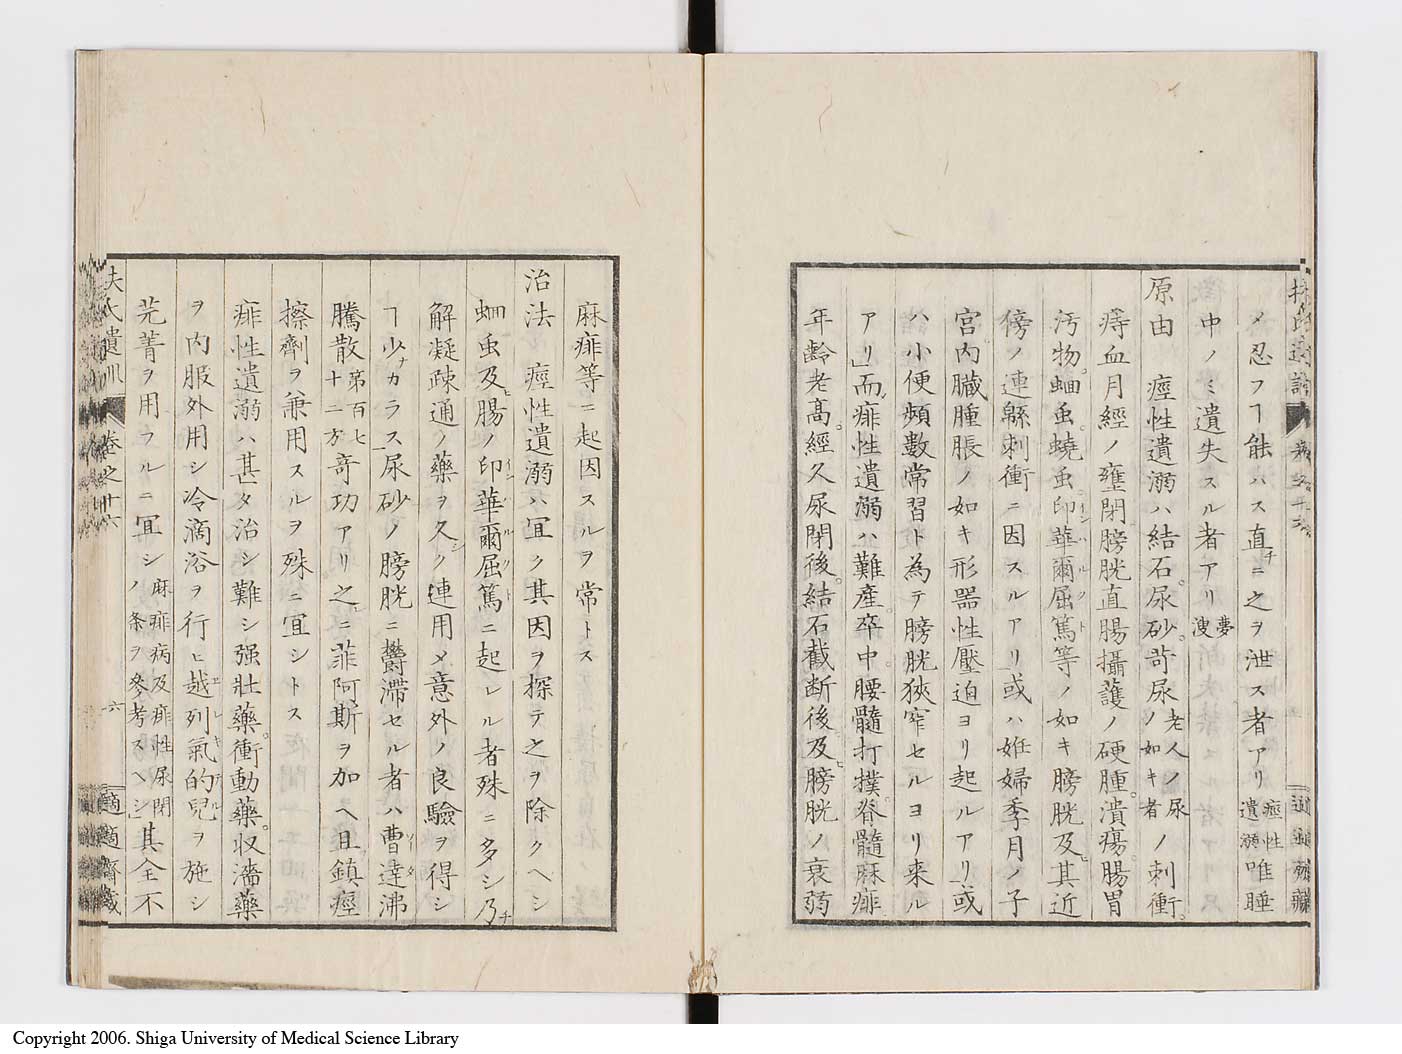 メ忍フヿ能ハス直チニ之ヲ泄ス者アリ 痙性遺溺 唯睡
中ノミ遺失スル者アリ 夢溲
原由 痙性遺溺ハ結石。尿砂。苛尿 老人ノ尿ノ如キ者 ノ刺衝。
痔血月經ノ壅閉膀胱直腸攝護ノ硬腫。潰瘍。腸胃
汚物。蛔虫。蟯虫。印華爾屈篤等ノ如キ膀胱及ヒ其近
傍ノ連緜刺衝ニ因スルアリ或ハ姙婦季月ノ子
宮内臓腫脹ノ如キ形器性壓迫ヨリ起ルアリ或
ハ小便頻數常習ト為テ膀胱狹窄セルヨリ来ル
アリ」而痱性遺溺ハ難產。卒中。腰髓打撲。脊髓麻痱
年齡老高。經久尿閉後。結石截断後及ヒ膀胱ノ衰弱
麻痱等ニ起因スルヲ常トス
治法 痙性遺溺ハ冝ク其因ヲ探テ之ヲ除クヘシ
蛔虫及ヒ腸ノ印華爾屈篤ニ起レル者殊ニ多シ乃チ
解凝疎通ノ藥ヲ久シク連用メ意外ノ良驗ヲ得シ
ヿ少ナカラス尿砂ノ膀胱ニ鬱滯セル者ハ曹達沸
騰散 第百七十二方 竒功アリ之ニ菲阿斯ヲ加ヘ且鎮痙
擦劑ヲ兼用スルヲ殊ニ冝シトス
痱性遺溺ハ甚タ治シ難シ强壯藥。衝動藥。収濇藥
ヲ内服外用シ冷滴浴ヲ行ヒ越列氣的兒ヲ施シ
芫菁ヲ用フルニ冝シ 麻痱病及痱性尿閉ノ条ヲ參考スヘシ 其全不
扶氏遺訓 卷之十六 六 適適齋藏